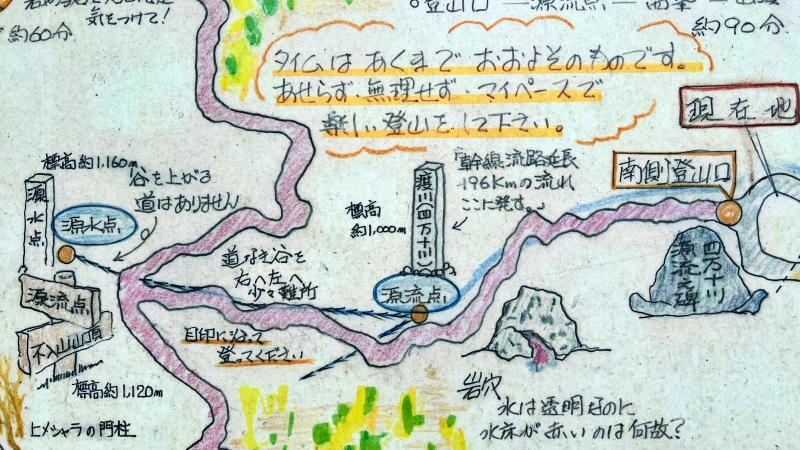 気をつけて!
約60分
登山口 — 源流点 —
約90分
タイムは あくまで おおよそのものです。
あせらず・無理せず・マイペースで
楽しい登山をして下さい。
現在地
南側登山口
標高約1,160m
源水点
源水点
谷を上がる
道はありません
渡川(四万十川)
幹線流路延長
196Kmの流れ
ここに発す。」
標高
約1,000m
源流点
道なき谷を
右へ左へ
少々難所
四万十川
源流之碑
源流点
不入山山頂
目印に沿って
登ってください
標高約1,120m
ヒメシャラの門柱
岩穴
水は透明なのに
水床が赤いのは何故?